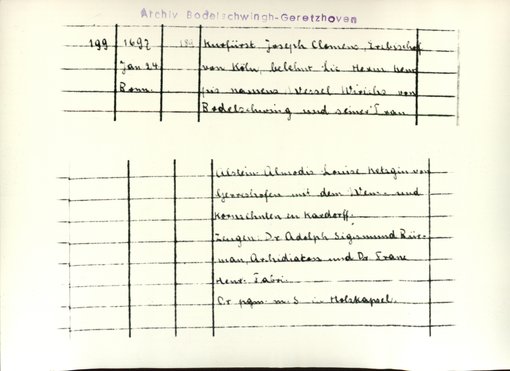 Archiv Bodelschwingh-Geretzhoven
199 1692 189 Kurfürst Joseph Clemens, Erzbischof
Jan 24 von Köln, belehnt die Herrn Hen-
Bonn. namens Wessel Wirichs von
Bodelschwing und seiner Frau
Alstein Almodis Louise Ketzgin von
Gerreshofen mit dem Wein- und
Kornzehnten in Kardorff.
Zeugen: Dr Adolph Sigismund Bür-
man, Archidiakon und Dr. Franz
Henr. Fabri.
Or. pgm. m. S. in Holzkapsel.